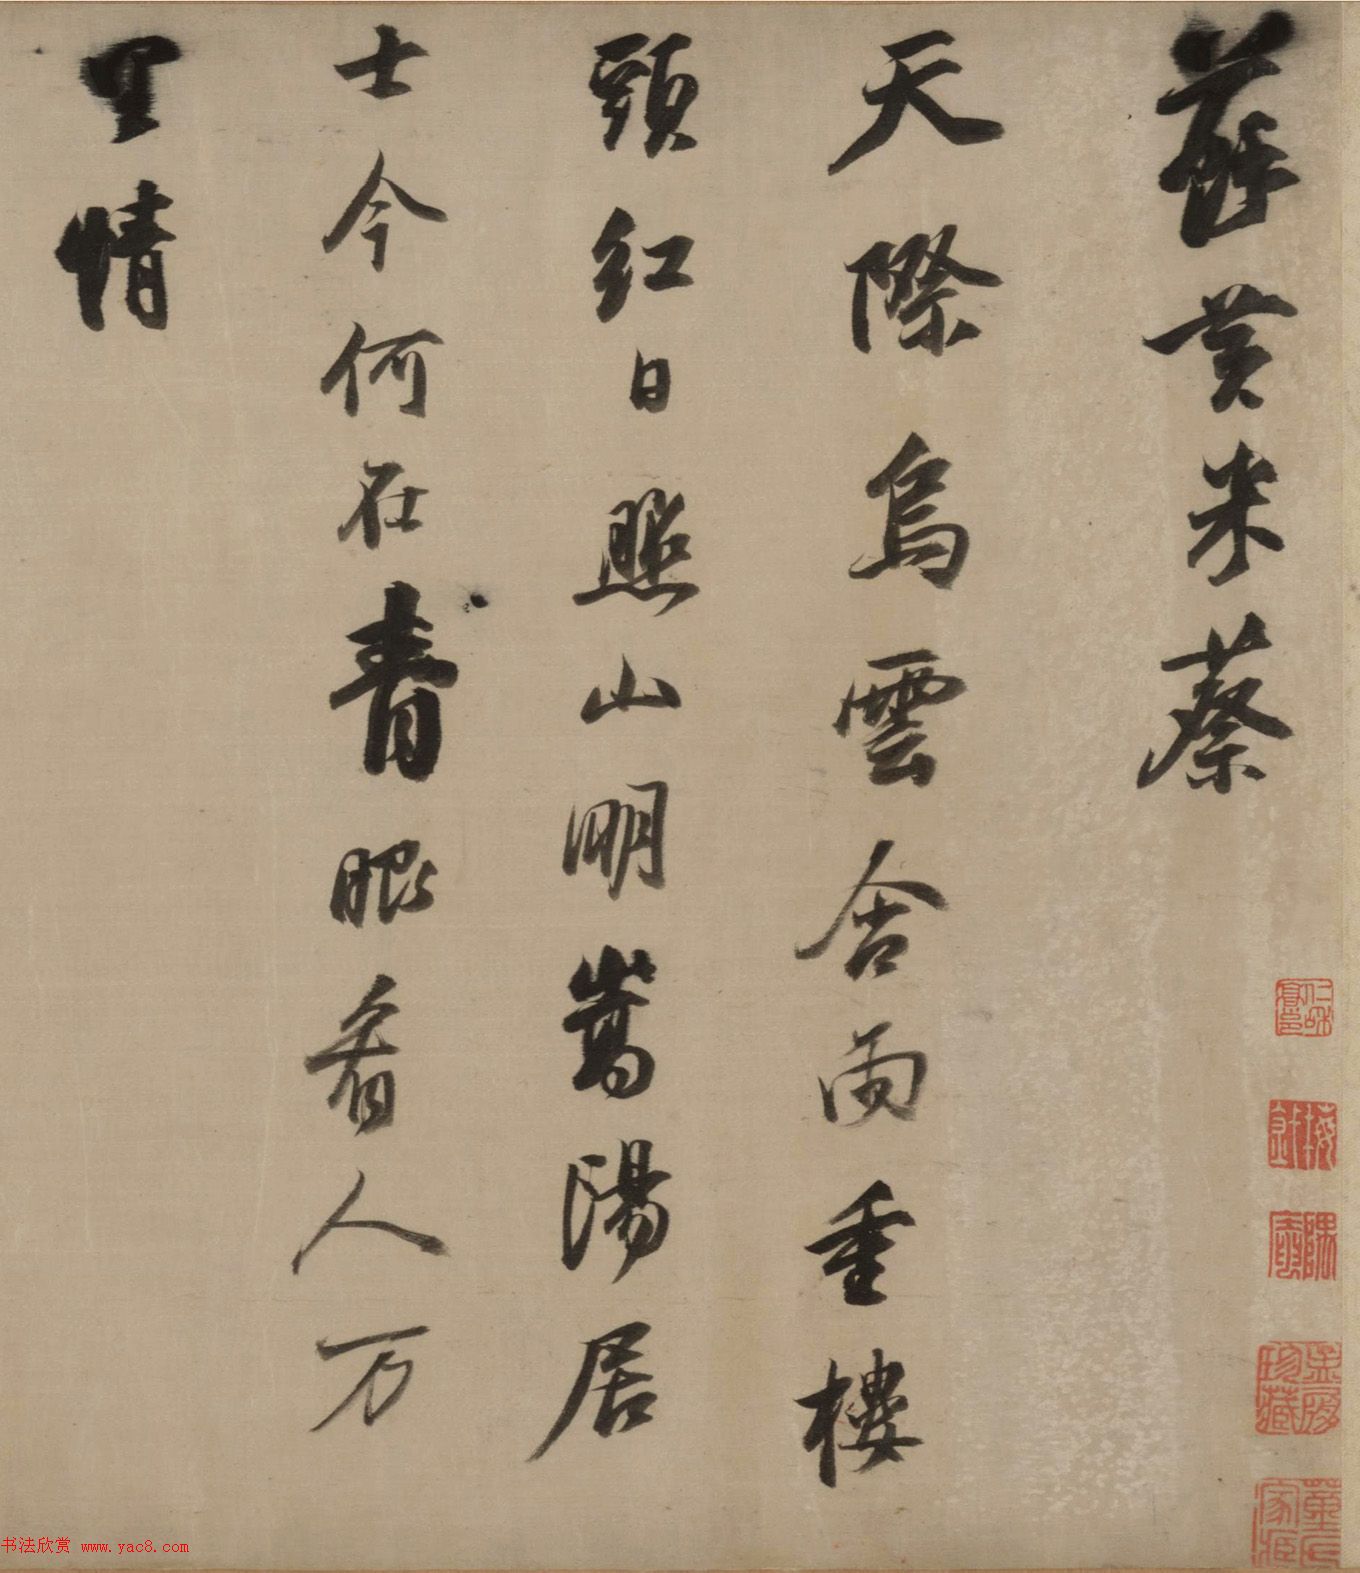 蘇黃米蔡
天際烏雲含雨重樓
頭紅日照山明嵩陽居
士今何在青眼看人万
里情
書法欣赏 www.yac8.com